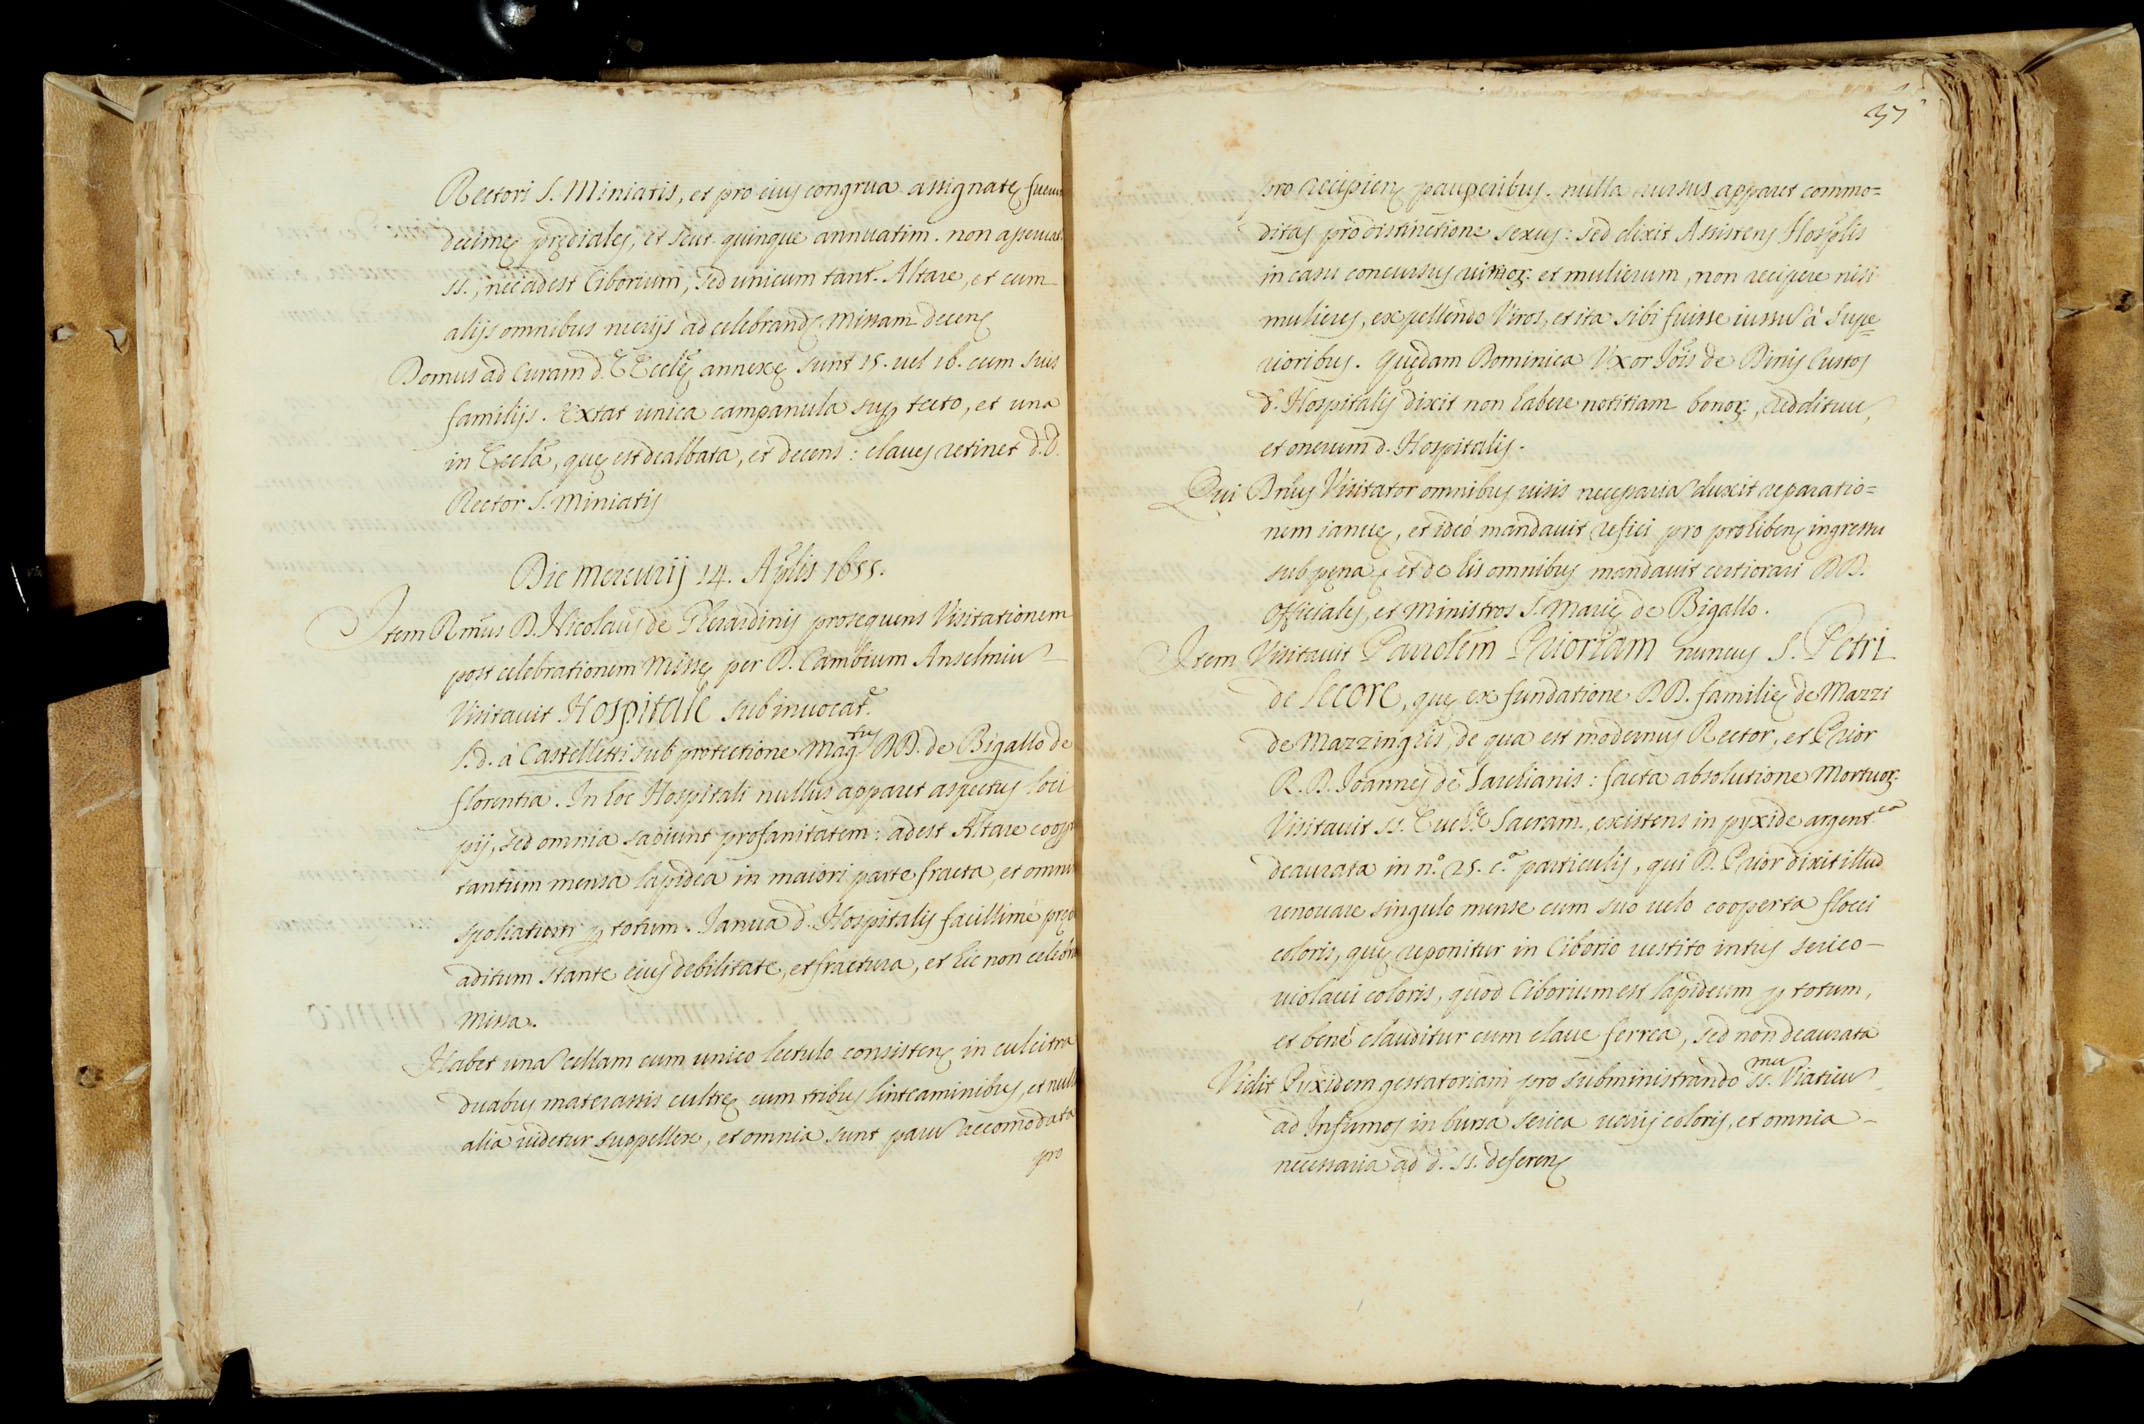 Rectori S. Miniatis, et pro eius congrua assignatę fuerunt
decimę prędiales, et scut. quinque annuatim. non asservat.
SS., nec adest Ciborium, sed unicum tant. Altare, et cum
alijs omnibus necrijs ad celebrand. Missam decenę
Domus ad Curam d. Ecclę annexę sunt 15. vel 16. cum suis
familijs. Extat unica campanula sup tecto, et una
in Eccla, quę est dealbata, et decens: claves retinet d. D.
Rector S. Miniatis
Die Mercurij 14. Aplis 1655.
Item Rmus D. Nicolaus de Gherardinis prosequens Visitationem
post celebrationem Missę per D. Cambium Anselmiu
Visitavit Hospitale sub invocat.
S. d. à Castelletti sub protectione Mag. DD. de Bigallo de
florentia. In hoc Hospitali nullus apparet aspectus loci
pij, sed omnia sapiunt profanitatem: adest Altare coop
tantum mensa lapidea in maiori parte fracta, et omni
spoliatum p totum. Ianua d. Hospitalis facillime
aditum stante eius debilitate, et fractura, et hic non celebra
Missa.
Habet una cellam cum unico lectulo consistenę in culcitra
duabus materassis cultrę cum tribus linteaminibus, et nulla
alia videtur suppellex, et omnia sunt paru accomodata
pro
37
pro recipienę pauperibus. nulla rursus apparet commo=
ditas pro distinctione sexus: sed dixit Assistens Hosplis
in casu concursus viror. et mulierum, non recipere nisi
mulieres, expellendo Viros, et ita sibi fuisse iussu à Supe=
rioribus. Quędam Dominica Uxor Iois de Binis Custos
d. Hospitalis dixit non habere notitiam bonor., reddituu,
et onerum d. Hospitalis.
Qui Dnus Visitator omnibus visis necessaria duxit reparatio=
nem ianuę, et ideò mandavit refici pro prohibenę ingressu
sub pęna et de his omnibus mandavit certiorari DD.
Officiales, et Ministros S. Marię de Bigallo.
Item Visitavit Parrolem Prioriam nuncus S. Petri
de Secore, quę ex fundatione DD. familię de Mazzi
de Mazzinghis, de qua est modernus Rector, et Prior
R. D. Ioannes de Saulianis: facta absolutione Mortuor.
Visitavit SS. Euch. Sacram. existens in pyxide argentea
deaurata in n.° 25. c.ª particulis, qui D. Prior dixit illud
renovare singulo mense cum suo velo cooperta flocci
coloris, quę reponitur in Ciborio vestito intus serico
violacei coloris, quod Ciborium est lapideum p totum,
et bene clauditur cum clave ferrea, sed non deaurata
Vidit Pyxidem gestatoriam pro subministrando SS.mu Viaticu
ad Infirmos in bursa serica varij coloris, et omnia
necessaria ad d. SS. deferenę